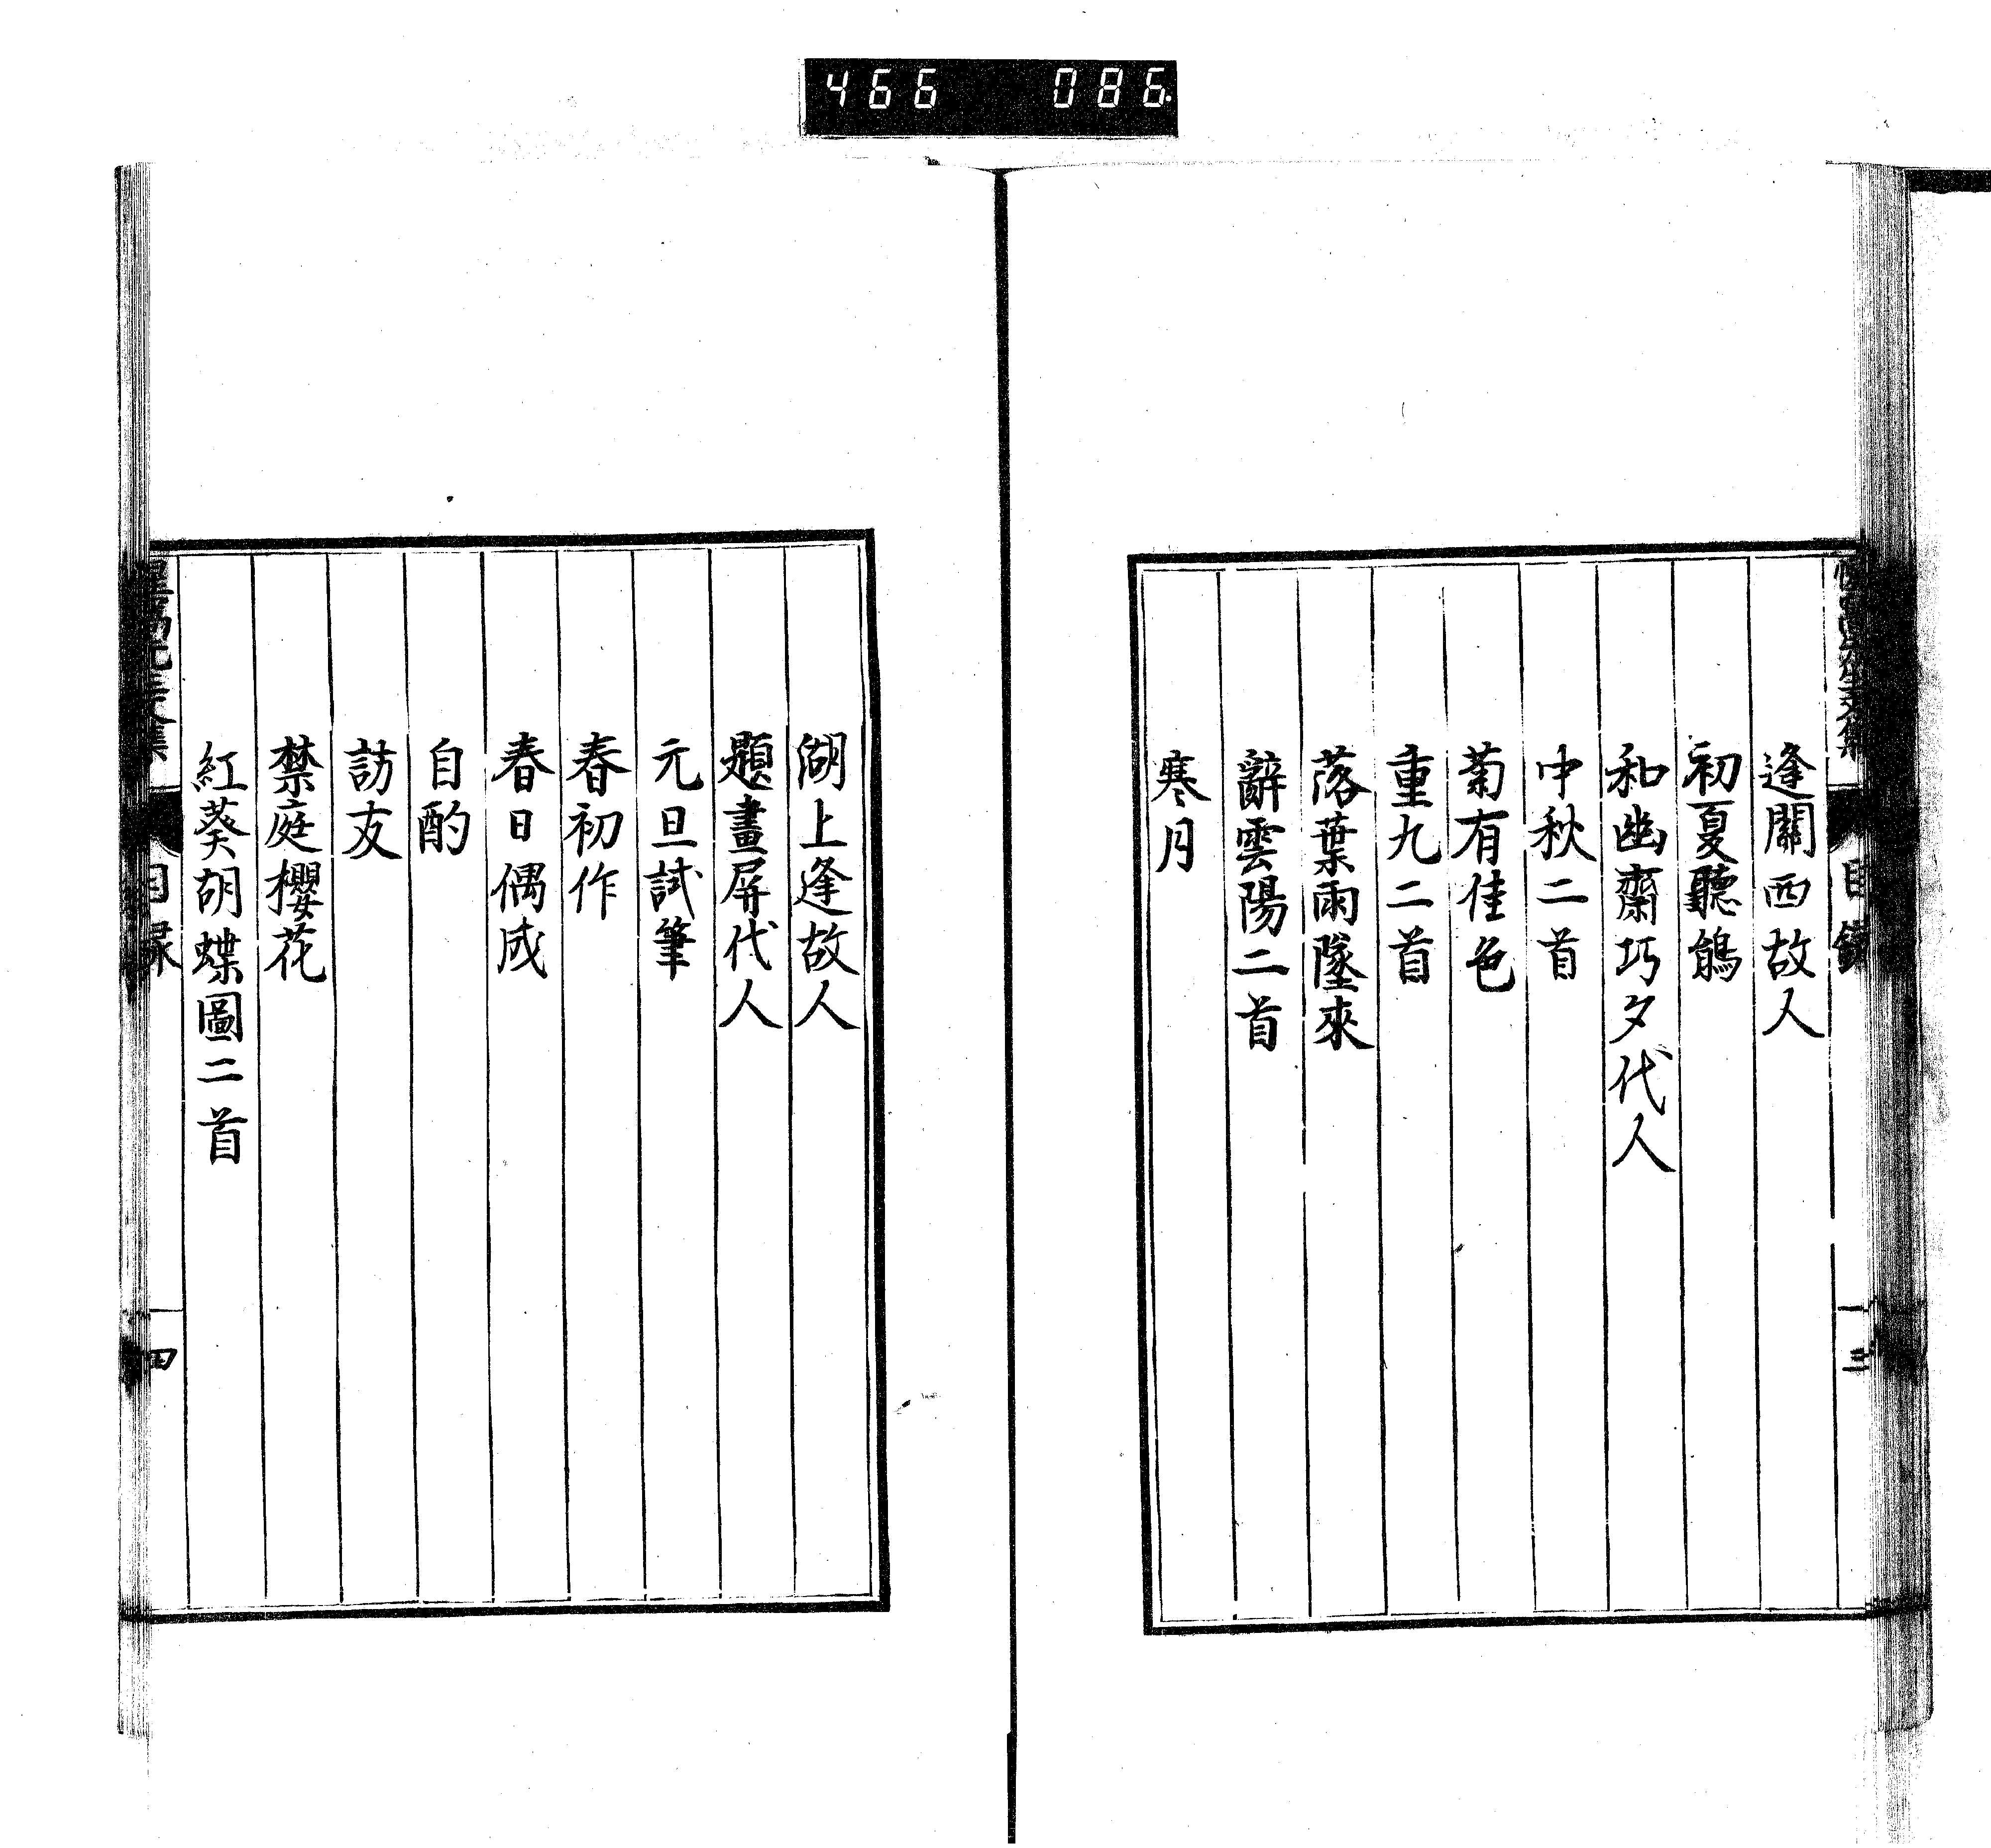 466 086
逢關西故人
初夏聽鵑
和幽齋巧夕代人
中秋二首
菊有佳色
重九二首
落葉雨墜來
辭雲陽二首
寒月
目錄
三
湖上逢故人
題畫屏代人
元旦試筆
春初作
春日偶成
自酌
訪友
禁庭櫻花
紅葵胡蝶圖二首
目録
四